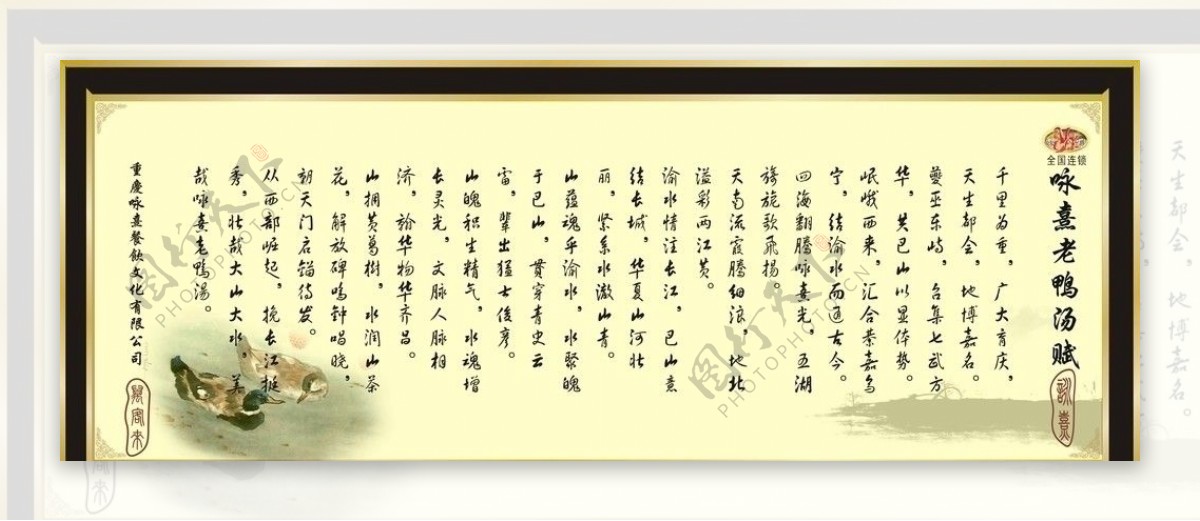 全国连锁
咏熹老鸭汤赋
咏熹
千里为重，广大育庆，
天生都会，地博嘉名。
夔巫东峙，台集七武方
华，共巴山以显体势。
岷峨西来，汇合叶嘉乌
宁，结渝水而通古今。
四海翻腾咏熹光，五湖
旖旎歌飞扬。
天南流霞腾细浪，地北
溢彩两江黄。
渝水情注长江，巴山意
结长城，华夏山河壮
丽，紧系水澈山青。
山蕴魂乎渝水，水聚魄
于巴山，贯穿青史云
雷，辈出猛士俊彦。
山魄积生精气，水魂增
长灵光，文脉人脉相
济，矜华物华齐昌。
山拥黄葛树，水润山茶
花，解放碑鸣钟唱晓，
朝天门启锚待发。
从西部崛起，挽长江挺
秀，壮哉大山大水，美
哉咏熹老鸭汤。
重庆咏熹餐饮文化有限公司
宾客来
图行天下
PHOTOPHOTO.CN
图行天下
PHOTOPHOTO.CN